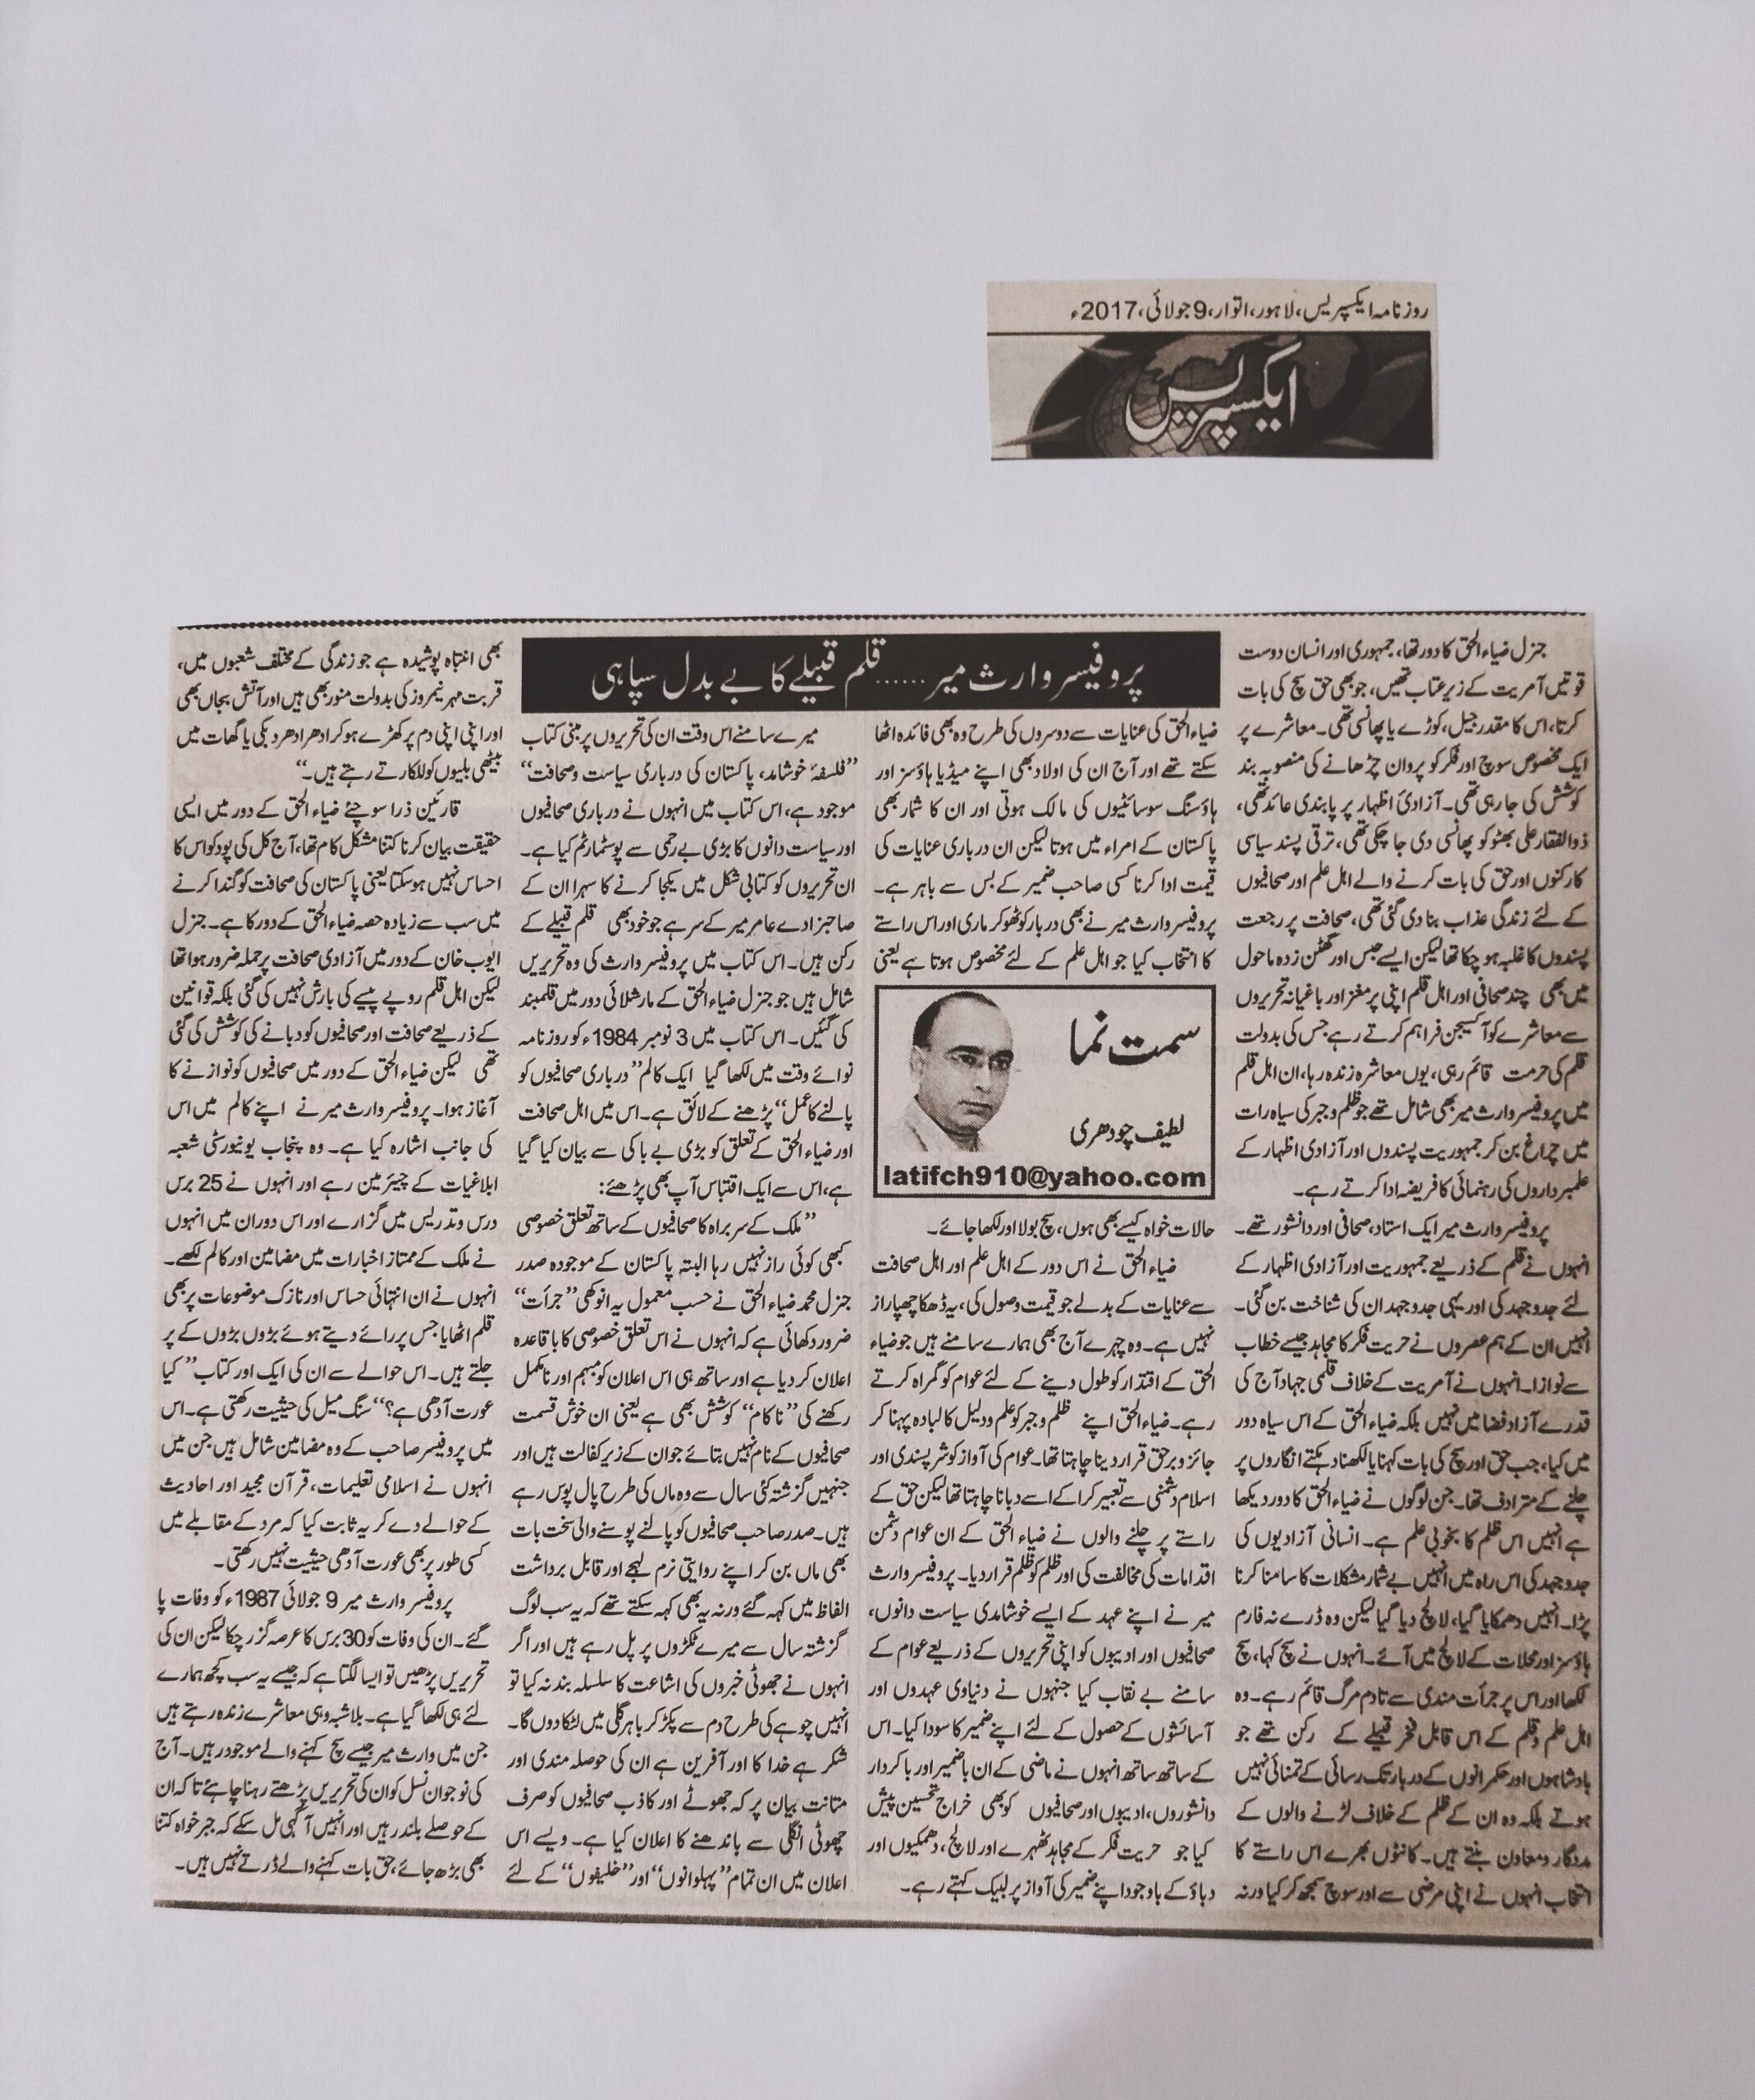 روزنامہ ایکسپریس، لاہور، اتوار، 9 جولائی، 2017ء
ایکسپریس
پروفیسر وارث میر......قلم قبیلے کا بے بدل سپاہی
جنرل ضیاء الحق کا دور تھا، جمہوری اور انسان دوست
قوتیں آمریت کے زیر عتاب تھیں، جو بھی حق سچ کی بات
کرتا، اس کا مقدر جیل، کوڑے یا پھانسی تھی۔ معاشرے پر
ایک مخصوص سوچ اور فکر کو پروان چڑھانے کی منصوبہ بند
کوشش کی جا رہی تھی۔ آزادیٔ اظہار پر پابندی عائد تھی،
ذوالفقار علی بھٹو کو پھانسی دی جا چکی تھی، ترقی پسند سیاسی
کارکنوں اور حق کی بات کرنے والے اہل علم اور صحافیوں
کے لئے زندگی عذاب بنا دی گئی تھی، صحافت پر رجعت
پسندوں کا غلبہ ہو چکا تھا لیکن ایسے حبس اور گھٹن زدہ ماحول
میں بھی چند صحافی اور اہل قلم اپنی پر مغز اور باغیانہ تحریروں
سے معاشرے کو آکسیجن فراہم کرتے رہے جس کی بدولت
قلم کی حرمت قائم رہی، یوں معاشرہ زندہ رہا، ان اہل قلم
میں پروفیسر وارث میر بھی شامل تھے جو ظلم و جبر کی سیاہ رات
میں چراغ بن کر جمہوریت پسندوں اور آزادی اظہار کے
علمبرداروں کی رہنمائی کا فریضہ ادا کرتے رہے۔
پروفیسر وارث میر ایک استاد، صحافی اور دانشور تھے۔
انہوں نے قلم کے ذریعے جمہوریت اور آزادی اظہار کے
لئے جدوجہد کی اور یہی جدوجہد ان کی شناخت بن گئی۔
انہیں ان کے ہم عصروں نے حریت فکر کا مجاہد جیسے خطاب
سے نوازا۔ انہوں نے آمریت کے خلاف قلمی جہاد آج کی
قدرے آزاد فضا میں نہیں بلکہ ضیاء الحق کے اس سیاہ دور
میں کیا، جب حق اور سچ کی بات کہنا یا لکھنا دہکتے انگاروں پر
چلنے کے مترادف تھا۔ جن لوگوں نے ضیاء الحق کا دور دیکھا
ہے انہیں اس ظلم کا بخوبی علم ہے۔ انسانی آزادیوں کی
جدوجہد کی اس راہ میں انہیں بے شمار مشکلات کا سامنا کرنا
پڑا۔ انہیں دھمکایا گیا، لالچ دیا گیا لیکن وہ ڈرے نہ فارم
ہاؤسز اور محلات کے لالچ میں آئے۔ انہوں نے سچ کہا، سچ
لکھا اور اس پر جرأت مندی سے تادم مرگ قائم رہے۔ وہ
اہل علم و قلم کے اس قابل فخر قبیلے کے رکن تھے جو
بادشاہوں اور حکمرانوں کے دربار تک رسائی کے تمنائی نہیں
ہوتے بلکہ وہ ان کے ظلم کے خلاف لڑنے والوں کے
مددگار و معاون بنتے ہیں۔ کانٹوں بھرے اس راستے کا
انتخاب انہوں نے اپنی مرضی سے اور سوچ سمجھ کر کیا ورنہ
ضیاء الحق کی عنایات سے دوسروں کی طرح وہ بھی فائدہ اٹھا
سکتے تھے اور آج ان کی اولاد بھی اپنے میڈیا ہاؤسز اور
ہاؤسنگ سوسائٹیوں کی مالک ہوتی اور ان کا شمار بھی
پاکستان کے امراء میں ہوتا لیکن ان درباری عنایات کی
قیمت ادا کرنا کسی صاحب ضمیر کے بس سے باہر ہے۔
پروفیسر وارث میر نے بھی دربار کو ٹھوکر ماری اور اس راستے
کا انتخاب کیا جو اہل علم کے لئے مخصوص ہوتا ہے یعنی
سمت نما
لطیف چودھری
latifch910@yahoo.com
حالات خواہ کیسے بھی ہوں، سچ بولا اور لکھا جائے۔
ضیاء الحق نے اس دور کے اہل علم اور اہل صحافت
سے عنایات کے بدلے جو قیمت وصول کی، یہ ڈھکا چھپا راز
نہیں ہے۔ وہ چہرے آج بھی ہمارے سامنے ہیں جو ضیاء
الحق کے اقتدار کو طول دینے کے لئے عوام کو گمراہ کرتے
رہے۔ ضیاء الحق اپنے ظلم و جبر کو علم و دلیل کا لبادہ پہنا کر
جائز و برحق قرار دینا چاہتا تھا۔ عوام کی آواز کو شر پسندی اور
اسلام دشمنی سے تعبیر کرا کے اسے دبانا چاہتا تھا لیکن حق کے
راستے پر چلنے والوں نے ضیاء الحق کے ان عوام دشمن
اقدامات کی مخالفت کی اور ظلم کو ظلم قرار دیا۔ پروفیسر وارث
میر نے اپنے عہد کے ایسے خوشامدی سیاست دانوں،
صحافیوں اور ادیبوں کو اپنی تحریروں کے ذریعے عوام کے
سامنے بے نقاب کیا جنہوں نے دنیاوی عہدوں اور
آسائشوں کے حصول کے لئے اپنے ضمیر کا سودا کیا۔ اس
کے ساتھ ساتھ انہوں نے ماضی کے ان باضمیر اور باکردار
دانشوروں، ادیبوں اور صحافیوں کو بھی خراج تحسین پیش
کیا جو حریت فکر کے مجاہد ٹھہرے اور لالچ، دھمکیوں اور
دباؤ کے باوجود اپنے ضمیر کی آواز پر لبیک کہتے رہے۔
میرے سامنے اس وقت ان کی تحریروں پر مبنی کتاب
”فلسفۂ خوشامد، پاکستان کی درباری سیاست و صحافت“
موجود ہے، اس کتاب میں انہوں نے درباری صحافیوں
اور سیاست دانوں کا بڑی بے رحمی سے پوسٹمارٹم کیا ہے۔
ان تحریروں کو کتابی شکل میں یکجا کرنے کا سہرا ان کے
صاحبزادے عامر میر کے سر ہے جو خود بھی قلم قبیلے کے
رکن ہیں۔ اس کتاب میں پروفیسر وارث کی وہ تحریریں
شامل ہیں جو جنرل ضیاء الحق کے مارشلائی دور میں قلمبند
کی گئیں۔ اس کتاب میں 3 نومبر 1984ء کو روزنامہ
نوائے وقت میں لکھا گیا ایک کالم ”درباری صحافیوں کو
پالنے کا عمل“ پڑھنے کے لائق ہے۔ اس میں اہل صحافت
اور ضیاء الحق کے تعلق کو بڑی بے باکی سے بیان کیا گیا
ہے، اس سے ایک اقتباس آپ بھی پڑھئے:
”ملک کے سربراہ کا صحافیوں کے ساتھ تعلق خصوصی
کبھی کوئی راز نہیں رہا البتہ پاکستان کے موجودہ صدر
جنرل محمد ضیاء الحق نے حسب معمول یہ انوکھی ”جرأت“
ضرور دکھائی ہے کہ انہوں نے اس تعلق خصوصی کا باقاعدہ
اعلان کر دیا ہے اور ساتھ ہی اس اعلان کو مبہم اور نامکمل
رکھنے کی ”ناکام“ کوشش بھی ہے یعنی ان خوش قسمت
صحافیوں کے نام نہیں بتائے جو ان کے زیر کفالت ہیں اور
جنہیں گزشتہ کئی سال سے وہ ماں کی طرح پال پوس رہے
ہیں۔ صدر صاحب صحافیوں کو پالنے پوسنے والی سخت بات
بھی ماں بن کر اپنے روایتی نرم لہجے اور قابل برداشت
الفاظ میں کہہ گئے ورنہ یہ بھی کہہ سکتے تھے کہ یہ سب لوگ
گزشتہ سال سے میرے ٹکڑوں پر پل رہے ہیں اور اگر
انہوں نے جھوٹی خبروں کی اشاعت کا سلسلہ بند نہ کیا تو
انہیں چوہے کی طرح دم سے پکڑ کر باہر گلی میں لٹکا دوں گا۔
شکر ہے خدا کا اور آفرین ہے ان کی حوصلہ مندی اور
متانت بیان پر کہ جھوٹے اور کاذب صحافیوں کو صرف
چھوٹی انگلی سے باندھنے کا اعلان کیا ہے۔ ویسے اس
اعلان میں ان تمام ”پہلوانوں“ اور ”خلیفوں“ کے لئے
بھی انتباہ پوشیدہ ہے جو زندگی کے مختلف شعبوں میں،
قربت مہر نیمروز کی بدولت منور بھی ہیں اور آتش بجاں بھی
اور اپنی اپنی دم پر کھڑے ہو کر ادھر ادھر دبکی یا گھات میں
بیٹھی بلیوں کو للکارتے رہتے ہیں۔“
قارئین ذرا سوچئے ضیاء الحق کے دور میں ایسی
حقیقت بیان کرنا کتنا مشکل کام تھا، آج کل کی پود کو اس کا
احساس نہیں ہو سکتا یعنی پاکستان کی صحافت کو گندا کرنے
میں سب سے زیادہ حصہ ضیاء الحق کے دور کا ہے۔ جنرل
ایوب خان کے دور میں آزادی صحافت پر حملہ ضرور ہوا تھا
لیکن اہل قلم روپے پیسے کی بارش نہیں کی گئی بلکہ قوانین
کے ذریعے صحافت اور صحافیوں کو دبانے کی کوشش کی گئی
تھی لیکن ضیاء الحق کے دور میں صحافیوں کو نوازنے کا
آغاز ہوا۔ پروفیسر وارث میر نے اپنے کالم میں اس
کی جانب اشارہ کیا ہے۔ وہ پنجاب یونیورسٹی شعبہ
ابلاغیات کے چیئرمین رہے اور انہوں نے 25 برس
درس و تدریس میں گزارے اور اس دوران میں انہوں
نے ملک کے ممتاز اخبارات میں مضامین اور کالم لکھے۔
انہوں نے ان انتہائی حساس اور نازک موضوعات پر بھی
قلم اٹھایا جس پر رائے دیتے ہوئے بڑوں بڑوں کے پر
جلتے ہیں۔ اس حوالے سے ان کی ایک اور کتاب ”کیا
عورت آدھی ہے؟“ سنگ میل کی حیثیت رکھتی ہے۔ اس
میں پروفیسر صاحب کے وہ مضامین شامل ہیں جن میں
انہوں نے اسلامی تعلیمات، قرآن مجید اور احادیث
کے حوالے دے کر یہ ثابت کیا کہ مرد کے مقابلے میں
کسی طور پر بھی عورت آدھی حیثیت نہیں رکھتی۔
پروفیسر وارث میر 9 جولائی 1987ء کو وفات پا
گئے۔ ان کی وفات کو 30 برس کا عرصہ گزر چکا لیکن ان کی
تحریریں پڑھیں تو ایسا لگتا ہے کہ جیسے یہ سب کچھ ہمارے
لئے ہی لکھا گیا ہے۔ بلاشبہ وہی معاشرے زندہ رہتے ہیں
جن میں وارث میر جیسے سچ کہنے والے موجود رہیں۔ آج
کی نوجوان نسل کو ان کی تحریریں پڑھتے رہنا چاہئے تاکہ ان
کے حوصلے بلند رہیں اور انہیں آگہی مل سکے کہ جبر خواہ کتنا
بھی بڑھ جائے، حق بات کہنے والے ڈرتے نہیں ہیں۔